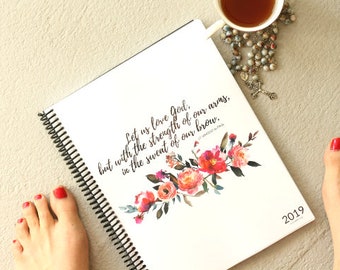 Let us love God,
but with the strength of our arms,
in the sweat of our brow.
2019